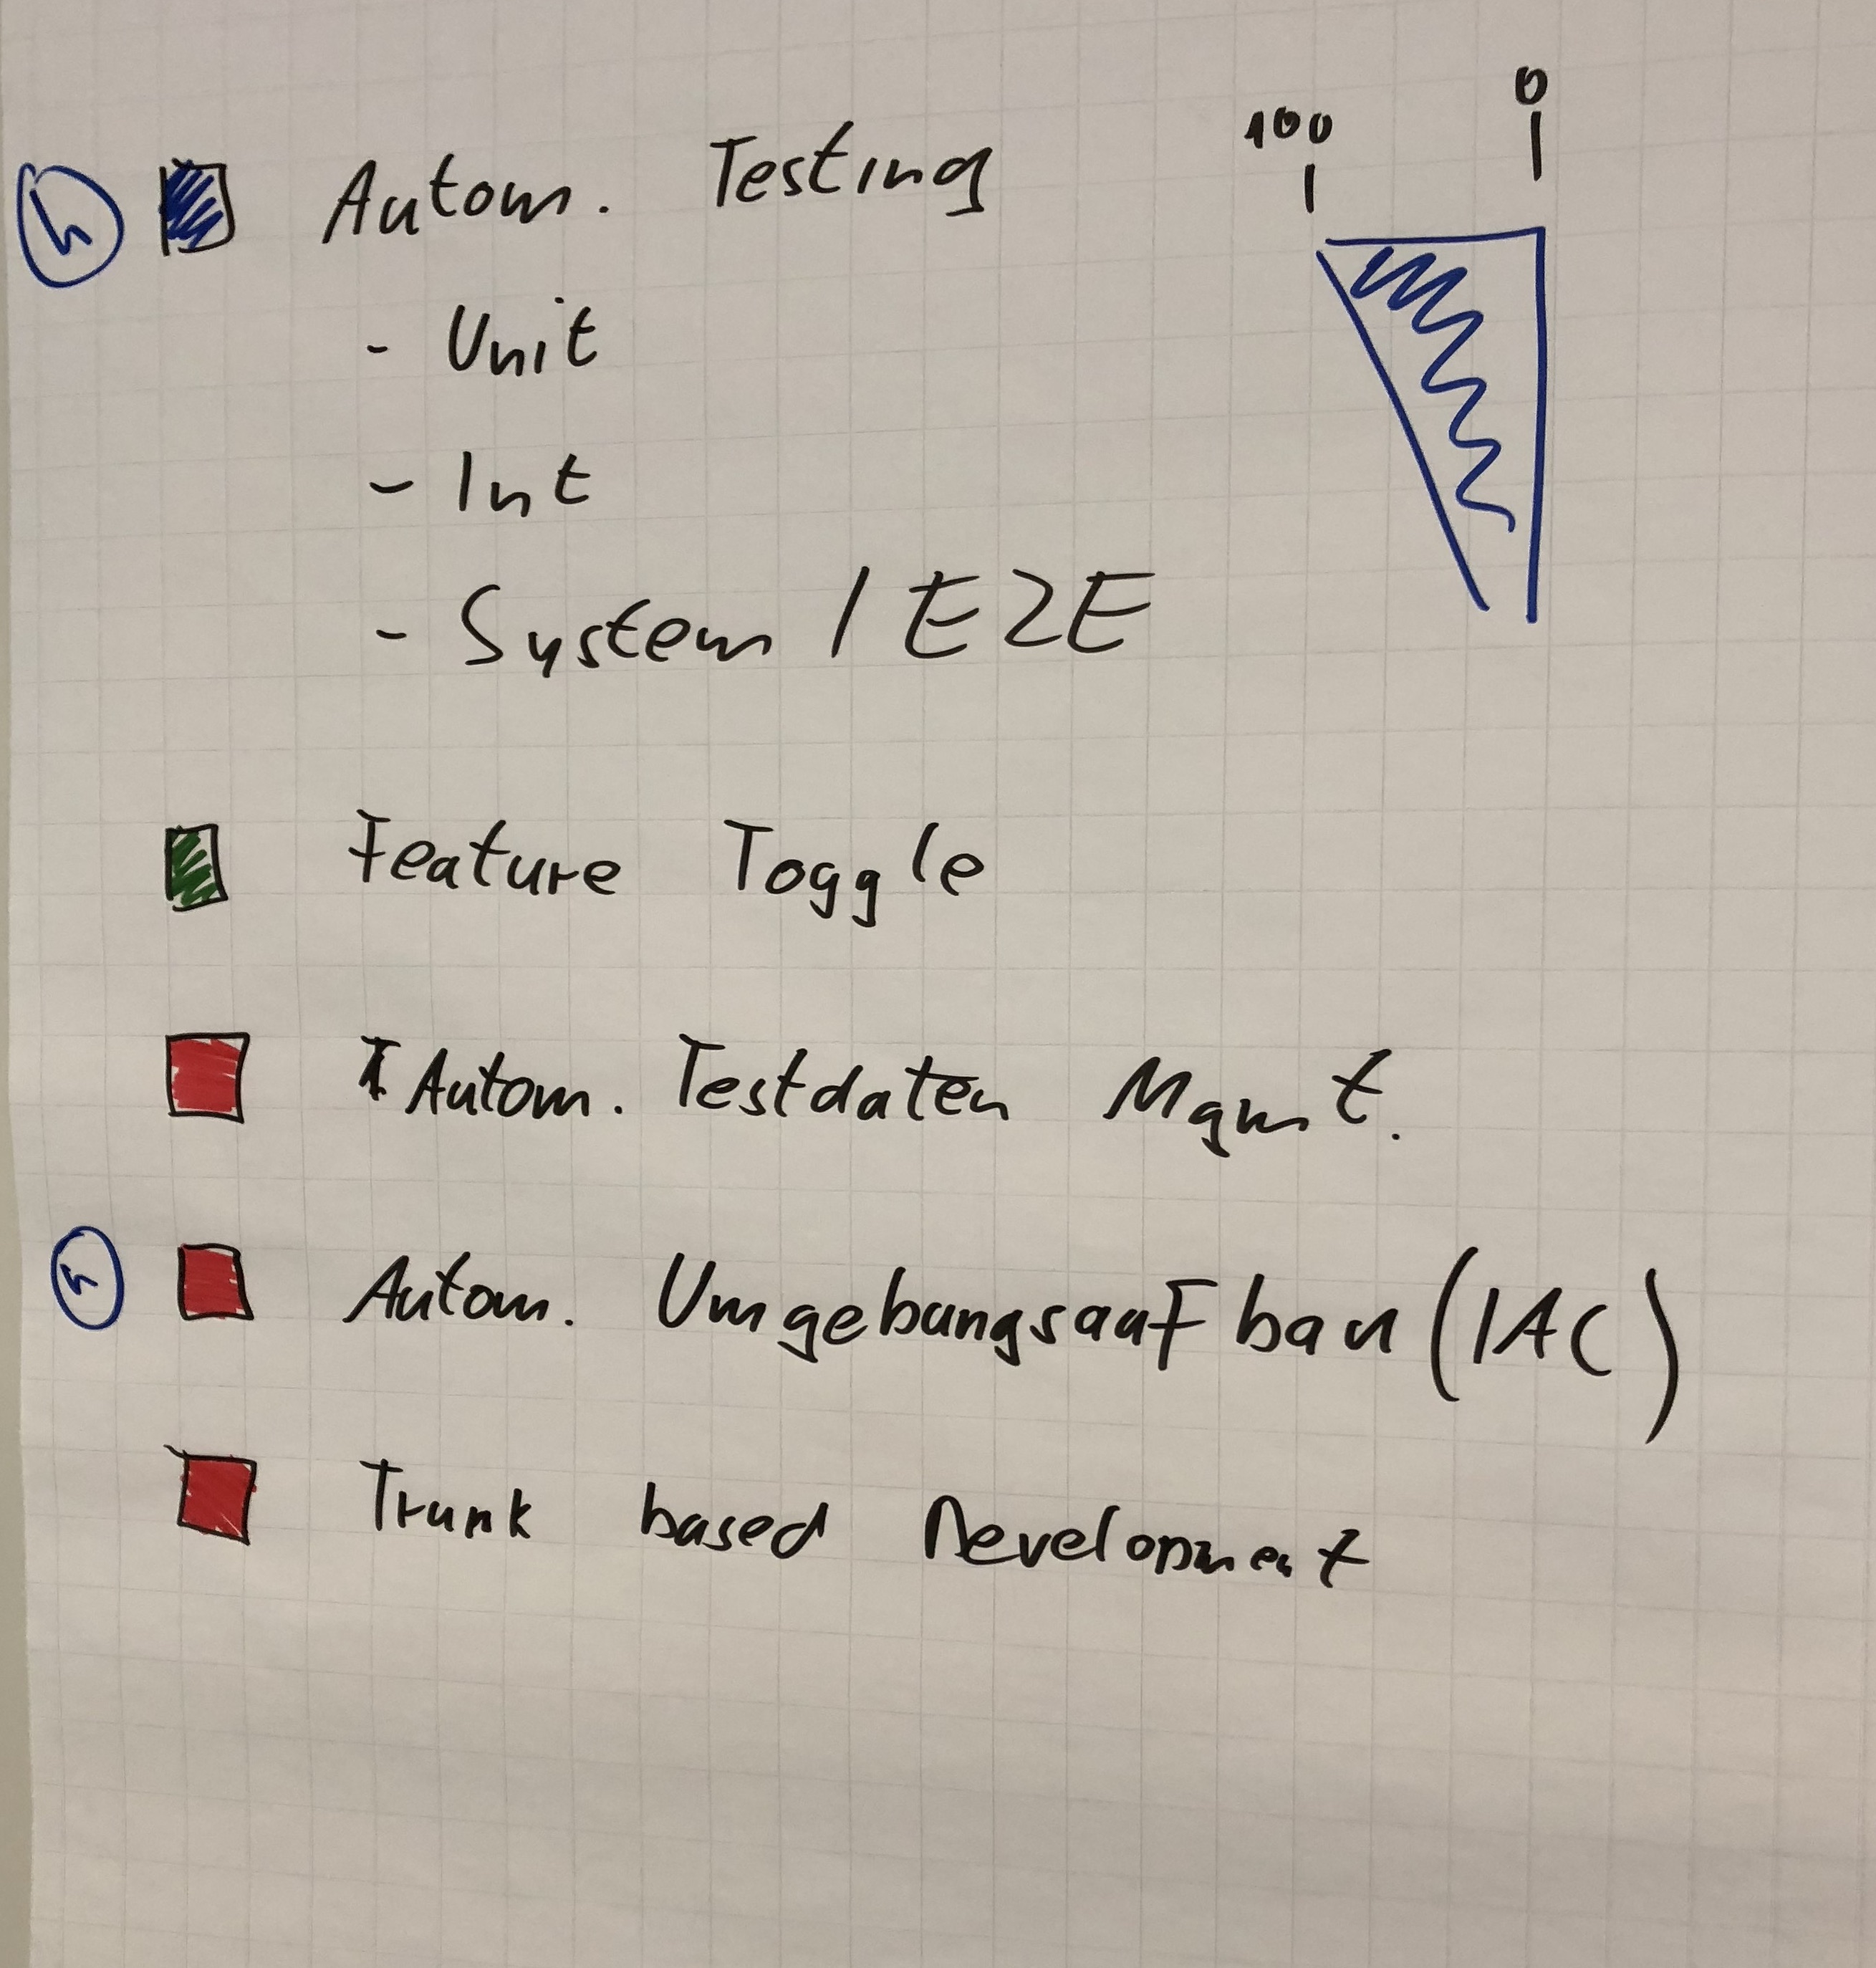 100 0
Autom. Testing
- Unit
- Int
- System / E2E
Feature Toggle
Autom. Testdaten Mgmt.
Autom. Umgebungsaufbau (IAC)
Trunk based Development